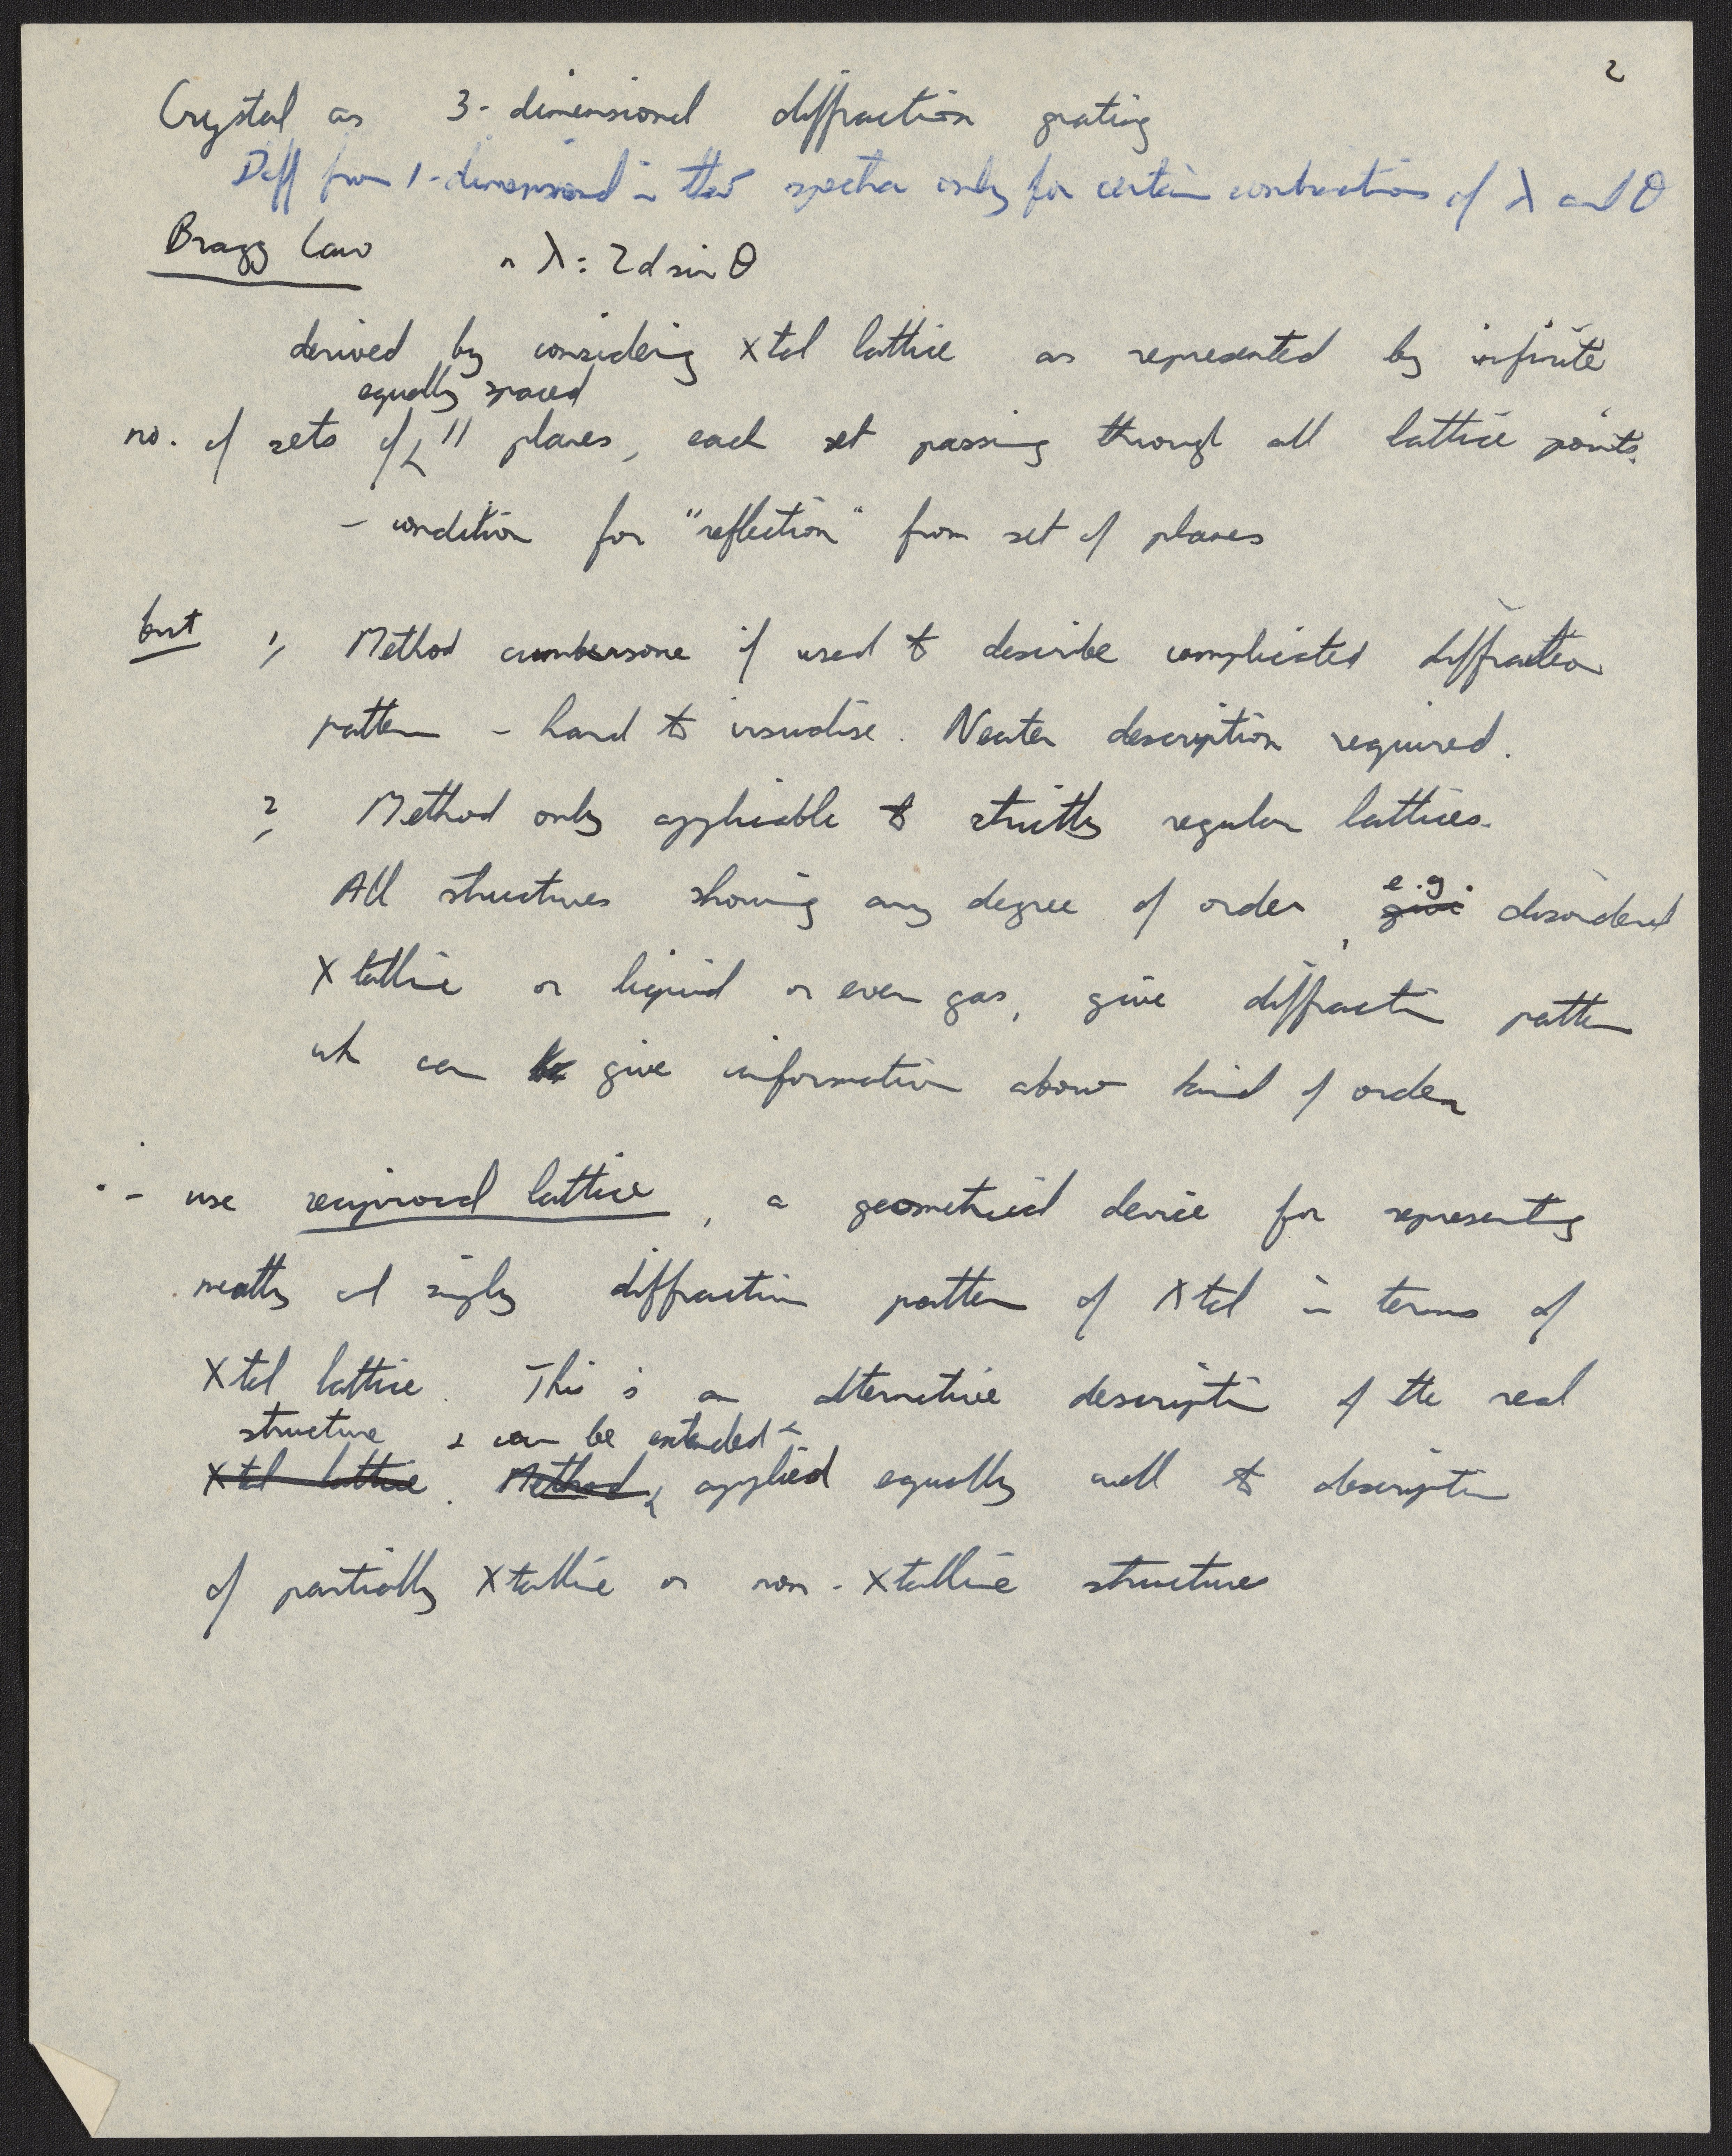 2
Crystal as 3-dimensional diffraction grating
Diff from 1-dimensional in that spectra only for certain combinations of λ and θ
Bragg Law n λ = 2d sin θ
derived by considering Xtal lattice as represented by infinite
equally spaced
no. of sets of // planes, each set passing through all lattice points.
- condition for "reflection" from set of planes
but 1/ Method cumbersome if used to describe complicated diffraction
pattern - hard to visualise. Neater description required.
2/ Method only applicable to strictly regular lattices.
e.g.
All structures showing any degree of order, give disordered
Xtalline or liquid or even gas, give diffraction pattern
wh can be give information about kind of order
∴ - use reciprocal lattice, a geometrical device for representing
neatly and simply diffraction pattern of Xtal in terms of
Xtal lattice. This is an alternative description of the real
structure & can be extended &
Xtal lattice. Method applied equally well to description
of partially Xtalline or non-Xtalline structures